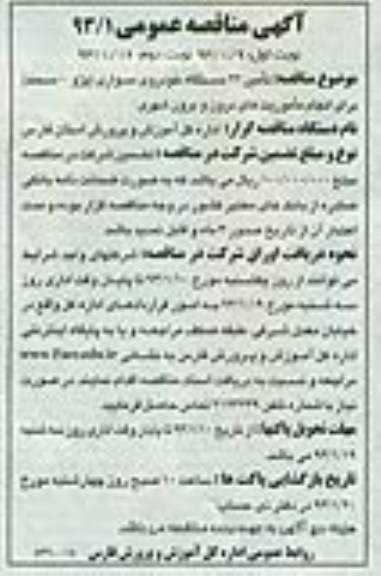 آگهی مناقصه عمومی ۹۳/۱
نوبت اول: ۹۳/۱/۹ نوبت دوم:
موضوع مناقصه: تأمین ۲۲ دستگاه خودروی سواری
برای انجام مأموریت های درون و برون شهری
نام دستگاه مناقصه گزار: اداره کل آموزش و پرورش استان فارس
نوع و مبلغ تضمین شرکت در مناقصه: تضمین شرکت در مناقصه
مبلغ ریال می باشد که به صورت ضمانت نامه بانکی
صادره از بانک های معتبر کشور در وجه مناقصه گزار بوده و مدت
اعتبار آن از تاریخ صدور ۳ ماه و قابل تمدید باشد
نحوه دریافت اوراق شرکت در مناقصه: شرکتهای واجد شرایط
می توانند از روز یکشنبه مورخ ۹۳/۱/۱۰ تا پایان وقت اداری روز
سه شنبه مورخ به امور قراردادهای اداره کل واقع در
خیابان معدل شرقی، طبقه همکف مراجعه و یا به پایگاه اینترنتی
اداره کل آموزش و پرورش فارس به نشانی www.Fars.edu.ir
مراجعه و نسبت به دریافت اسناد مناقصه اقدام نمایند در صورت
نیاز با شماره تلفن تماس حاصل فرمایید
مهلت تحویل پاکتها: از تاریخ ۹۳/۱/۱۰ تا پایان وقت اداری روز سه شنبه
۹۳/۱/۱۹ می باشد
تاریخ بازگشایی پاکت ها: ساعت ۱۰ صبح روز چهارشنبه مورخ
۹۳/۱/۲۰ در دفتر ذی حساب
هزینه درج آگهی به عهده برنده مناقصه می باشد
روابط عمومی اداره کل آموزش و پرورش فارس